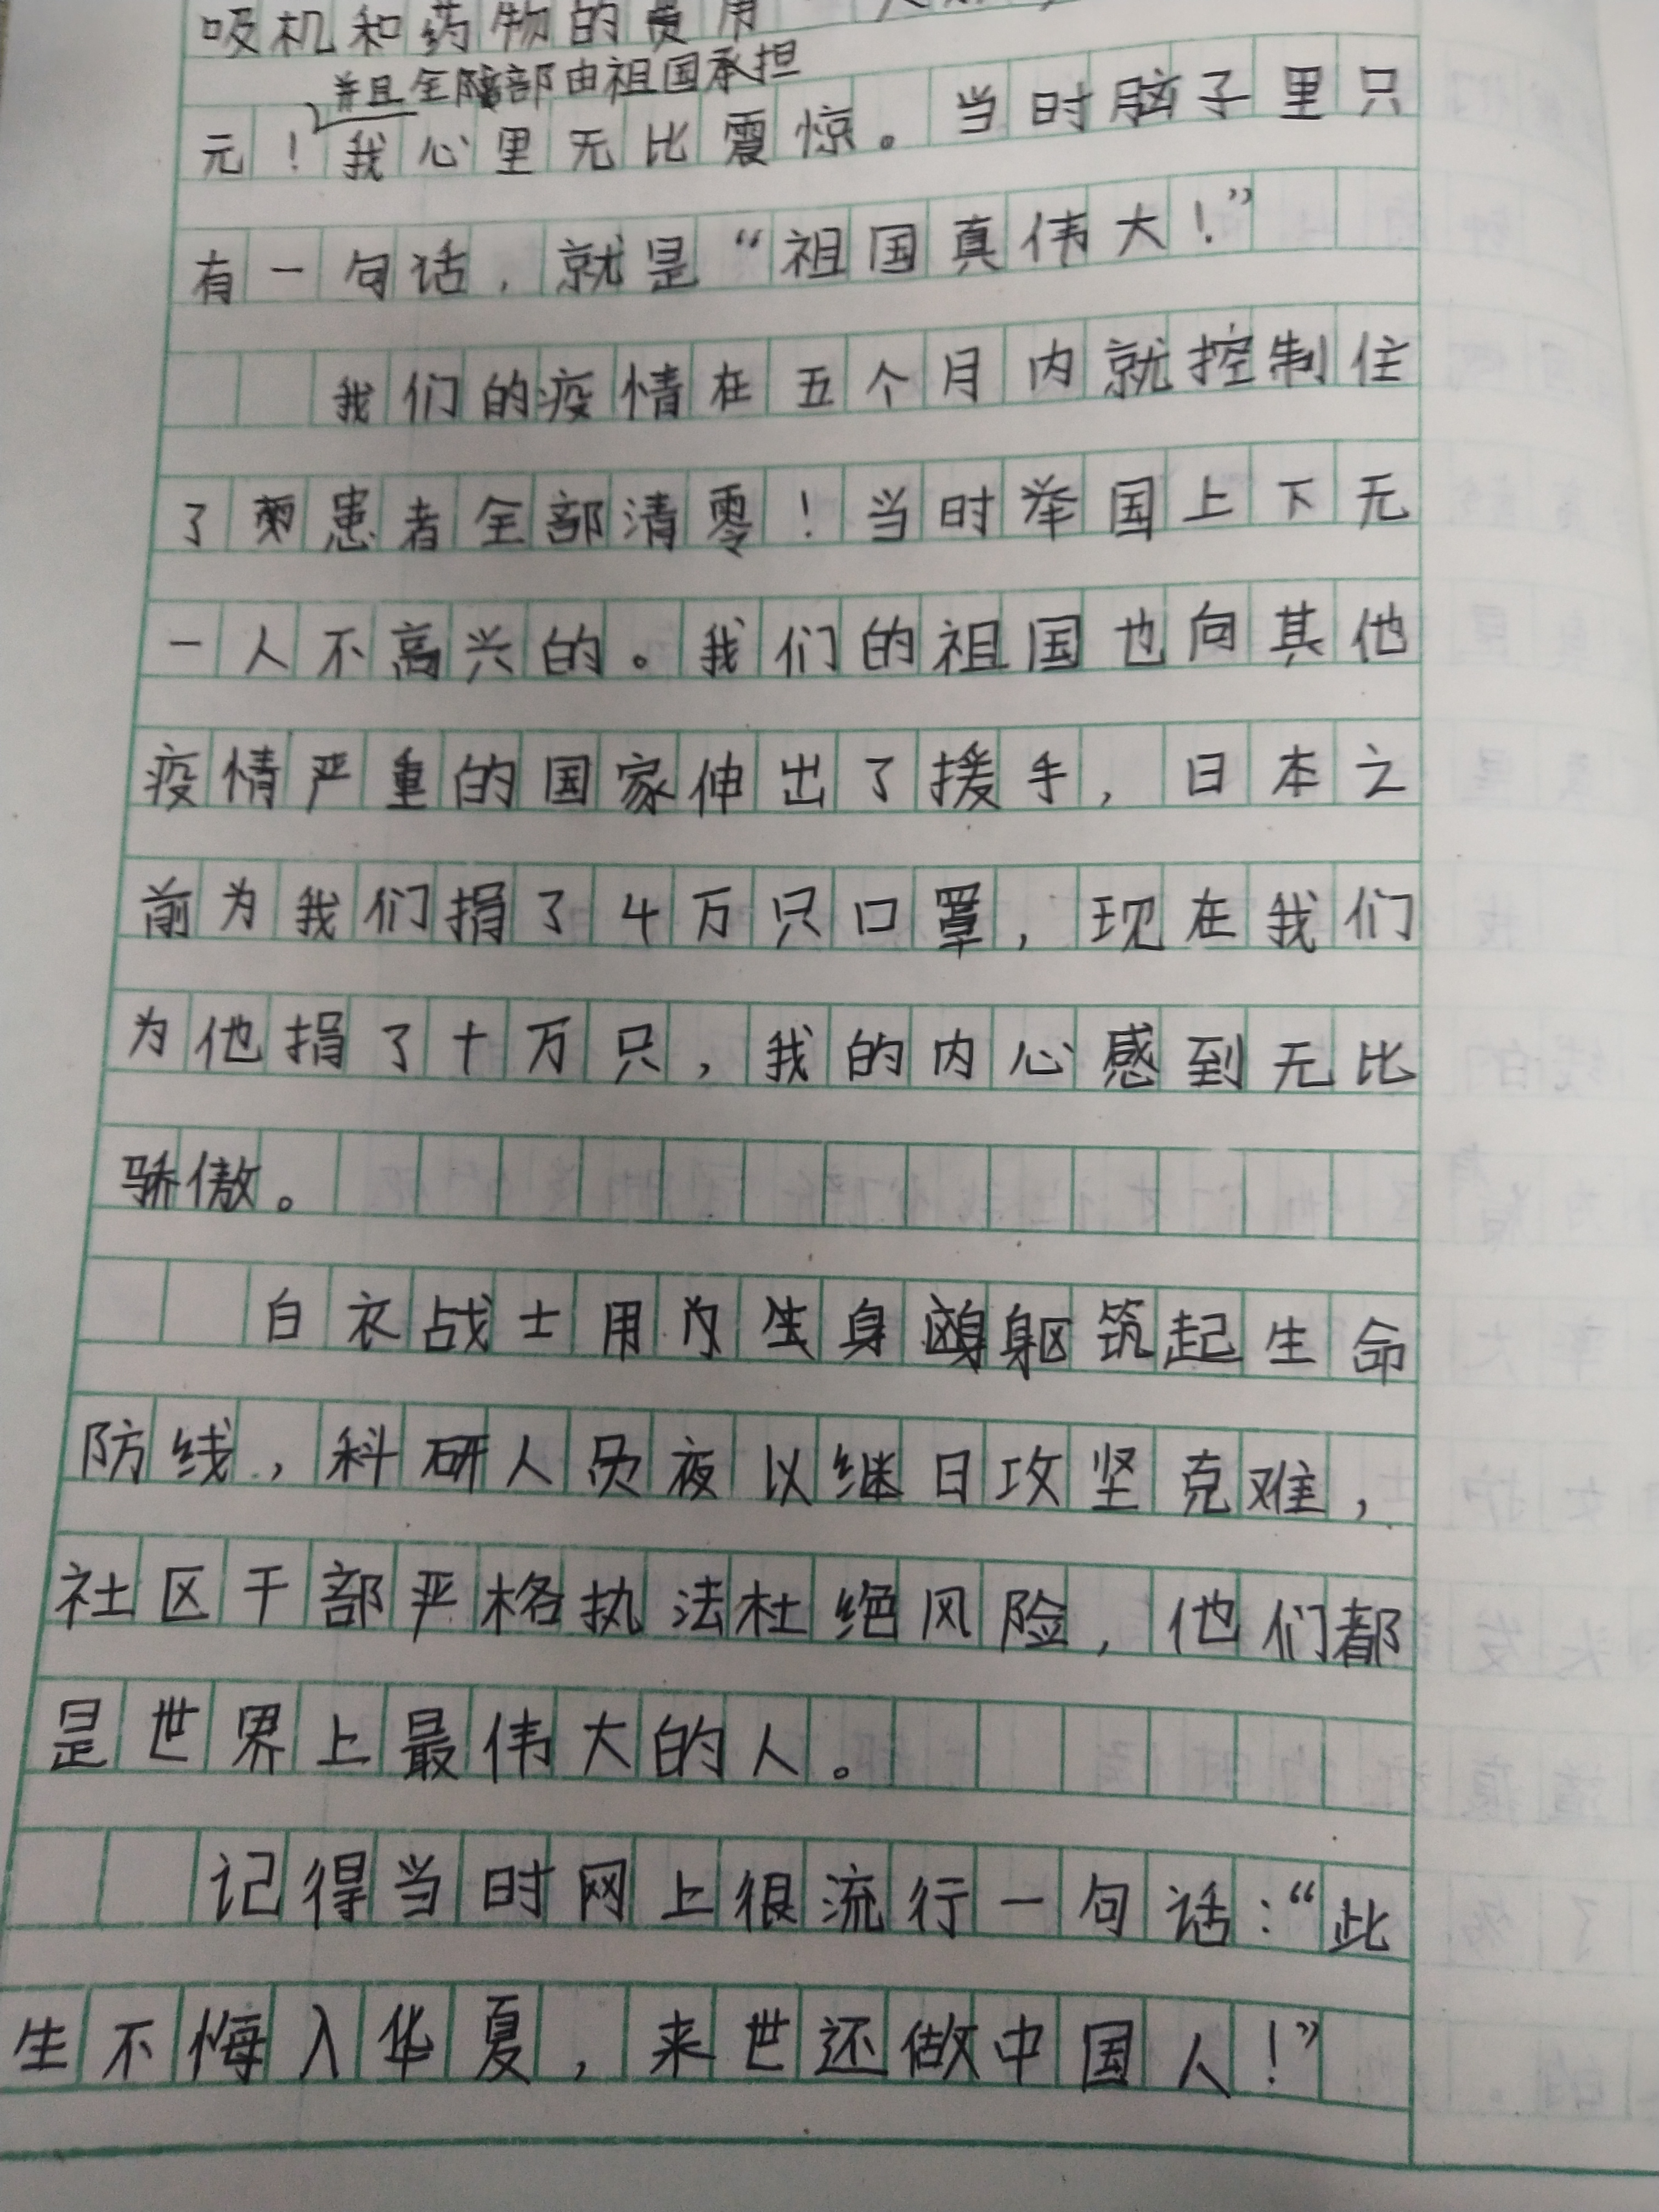 吸机和药物的费用
并且全部由祖国承担
元！我心里无比震惊。当时脑子里只
有一句话，就是“祖国真伟大！”
我们的疫情在五个月内就控制住
了患者全部清零！当时举国上下无
一人不高兴的。我们的祖国也向其他
疫情严重的国家伸出了援手，日本之
前为我们捐了4万只口罩，现在我们
为他捐了十万只，我的内心感到无比
骄傲。
白衣战士用身躯筑起生命
防线，科研人员夜以继日攻坚克难，
社区干部严格执法杜绝风险，他们都
是世界上最伟大的人。
记得当时网上很流行一句话：“此
生不悔入华夏，来世还做中国人！”